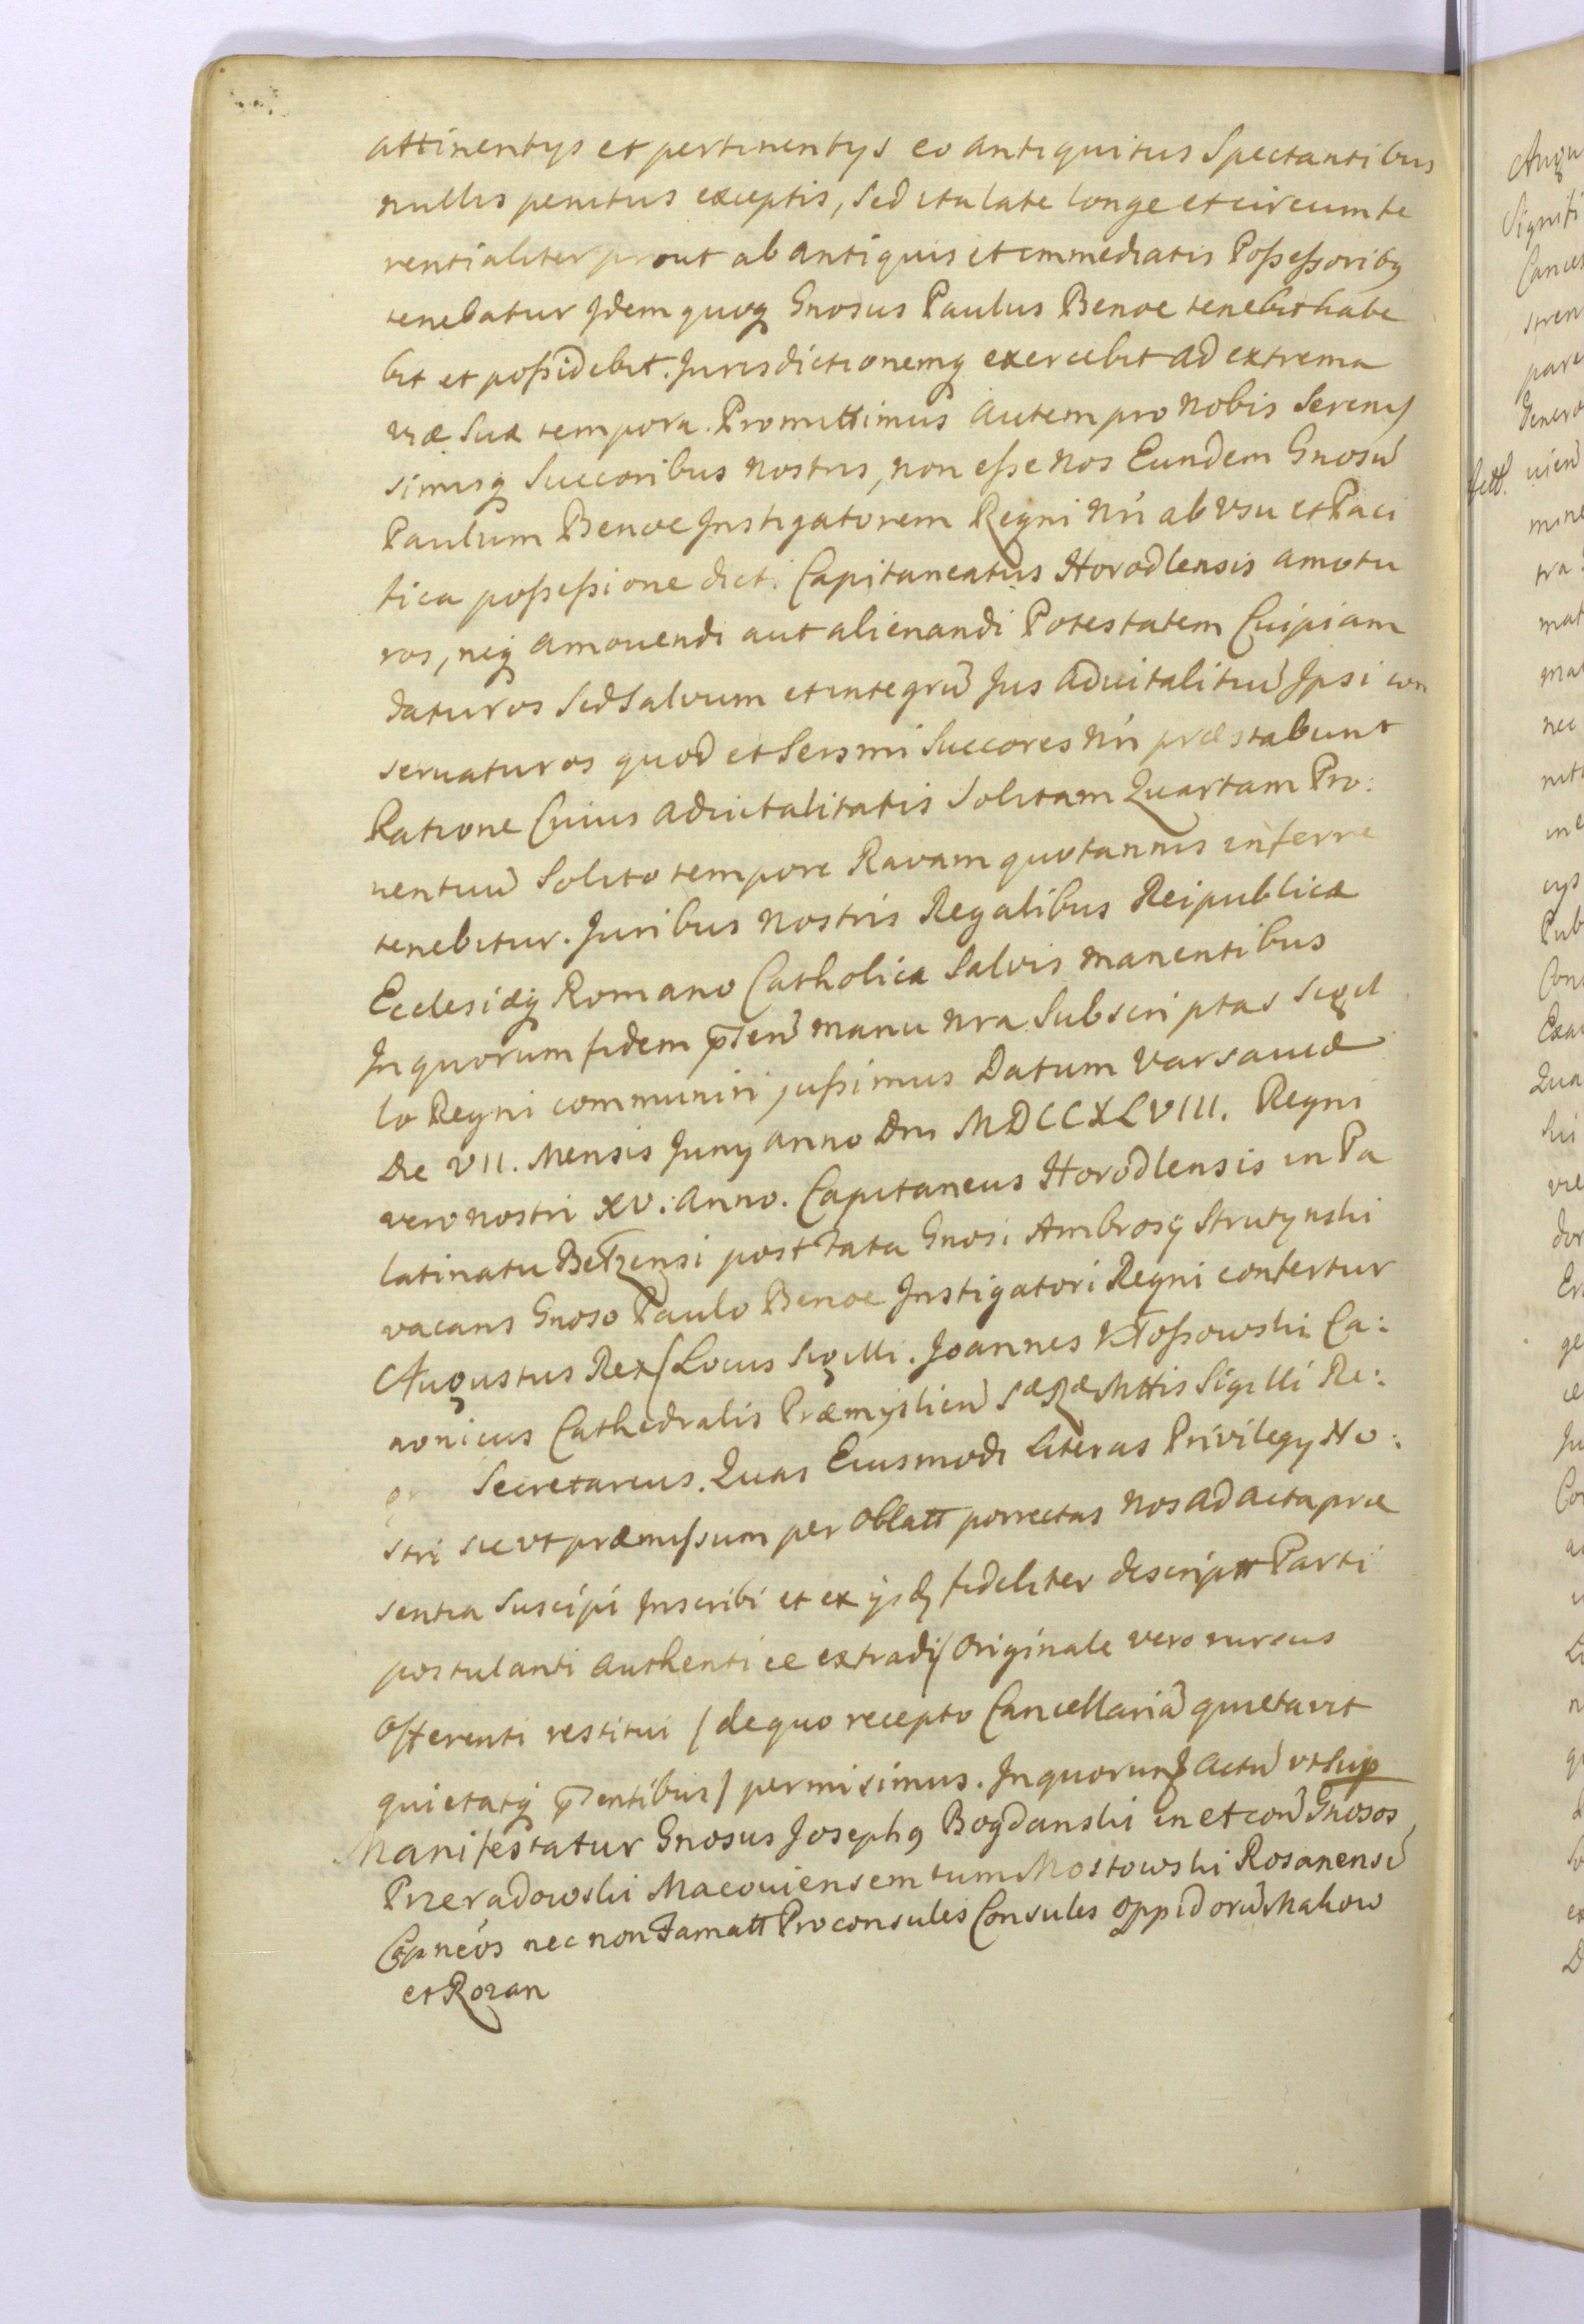 attinentys et pertinentys eo antiquitus Spectantibus
nullis penitus exceptis, sed ita late longe et circumfe
rentialiter prout ab antiquis et immediatis Poſseſsoribꝫ
tenebatur Idem quoqꝫ Gnosus Paulus Benoe tenebit habe
bit et poſsidebit. Jurisdictionemqꝫ exercebit ad extrema
vitæ Suæ tempora. Promittimus autem pro Nobis Sereniſ
simisqꝫ Succoribus nostris, non eſse nos Eundem Gnosū
Paulum Benoe Instigatorem Regni Nri ab vsu et Paci
fica poſseſsione dict. Capitaneatus Horodlensis amotu
ros, neqꝫ amovendi aut alienandi Potestatem Cuipiam
daturos Sed salvum et integrū Jus advitalitiū Ipsi con
servaturos quod et Sersmi Succores Nri præstabunt
Ratione Cuius advitalitatis Solitam Quartam Pro:
ventuū Solito tempore Ravam quotannis inferre
tenebitur. Juribus Nostris Regalibus Reipublicæ
Ecclesiæqꝫ Romano Catholicæ Salvis manentibus
In quorum fidem p̄sen̄ manu nra Subscriptas sigil
lo Regni communiri juſsimus Datum Varsaviæ
Die VII. Mensis Juny anno Dni MDCCXLVIII. Regni
vero nostri XV. Anno. Capitaneus Horodlensis in Pa
latinatu Betzensi post fata Gnosi Ambrosÿ Strutynski
vacans Gnoso Paulo Benoe Instigatori Regni confertur
Augustus Rex / Locus Sigilli. Joannes Kłoſsowski Ca:
nonicus Cathedralis Præmyslien̄ Sæ Ræ Mttis Sigilli Re:
Secretarius. Quas Eiusmodi literas Privilegy No:
stri sic vt præmiſsum per Oblatt porrectas nos ad acta præ
sentia Suscipi Inscribi et ex ijsdꝫ fideliter descriptt Parti
postulanti Authentice extradi / Originale vero rursus
Offerenti restitui / de quo recepto Cancellariā quietavit
quietatqꝫ p̄sentibus / permisimus. In quorum f actū vt sup
Manifestatur Gnosus Josephꝰ Bogdanski in et con̄ Gnosos
Przeradowski Macoviensem tum Mostowski Rosanensē
Capneos nec non Famatt Proconsules Consules oppidorū Makow
et Rozan